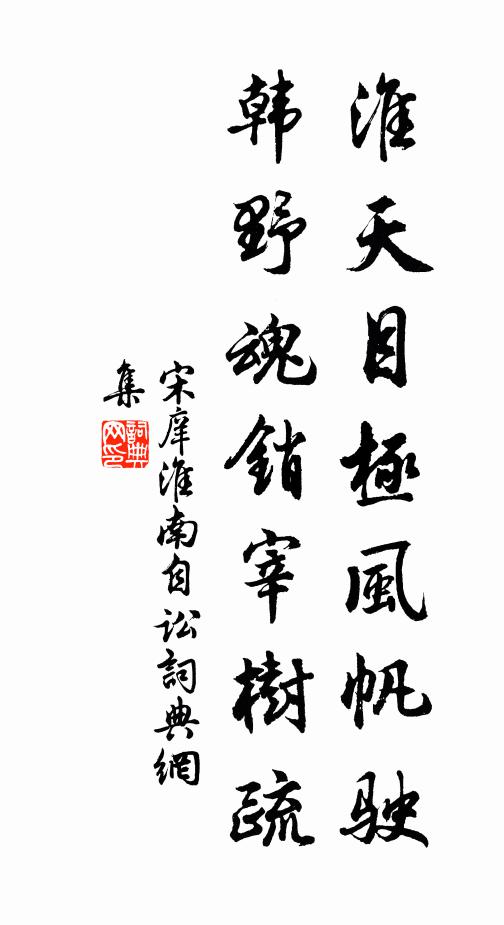 淮天目極風帆駛
韩野魂銷宰樹疏
宋庠淮南自讼詞典網
集
詞典网印